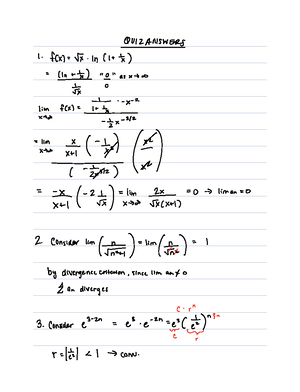 QUIZ ANSWERS
1. f(x) = √x · ln (1 + 1/x)
= (ln + 1/x) / (1/√x) "0"/0 as x → ∞
lim x→∞ f(x) = (1/(1 + 1/x) · -x^-2) / (-1/2 x^-3/2)
= lim x→∞ x/(x+1) (-1/x²) / (-1/(2x^3/2)) (x²/x²)
= -x/(x+1) (-2 1/√x) = lim x→∞ 2x/(√x(x+1)) = 0 → lim an = 0
2 Consider lim (n/√(n²+1)) = lim (n/√n²) = 1
by divergence criterion, since lim an ≠ 0
Σ an diverges
3. Consider e^(3-2n) = e³ · e^-2n = e³ (1/e²)^n
c · r^n
c r
r = |1/e²| < 1 → conv.